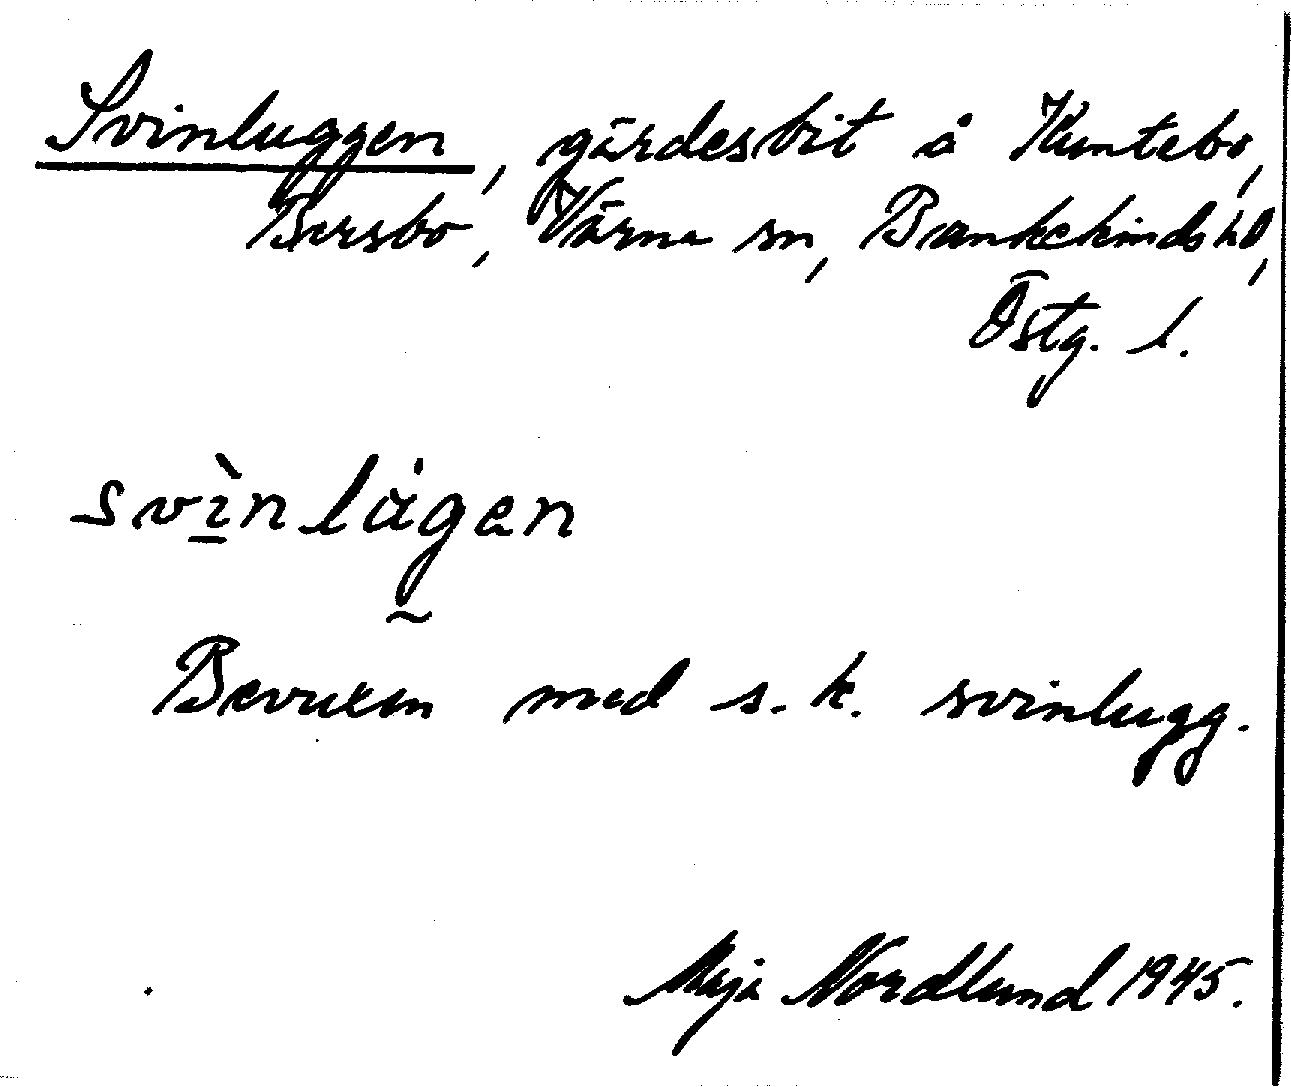 Svinluggen, gärdesbit å Kuntebo,
Bersbo, Värna sn, Bankekinds hd,
Östg. l.
svìnlågen
Bevuxen med s.k. svinlugg.
Maja Nordlund 1945.